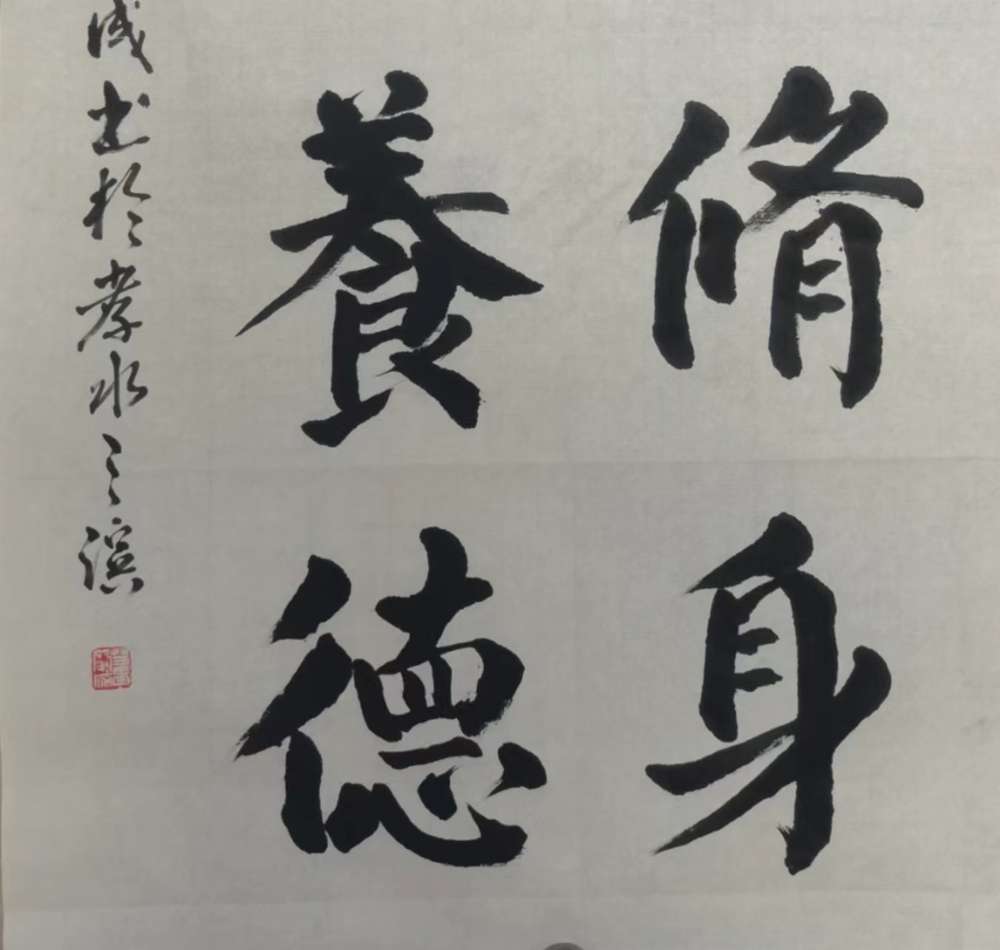 脩身
養德
成书於孝水之滨